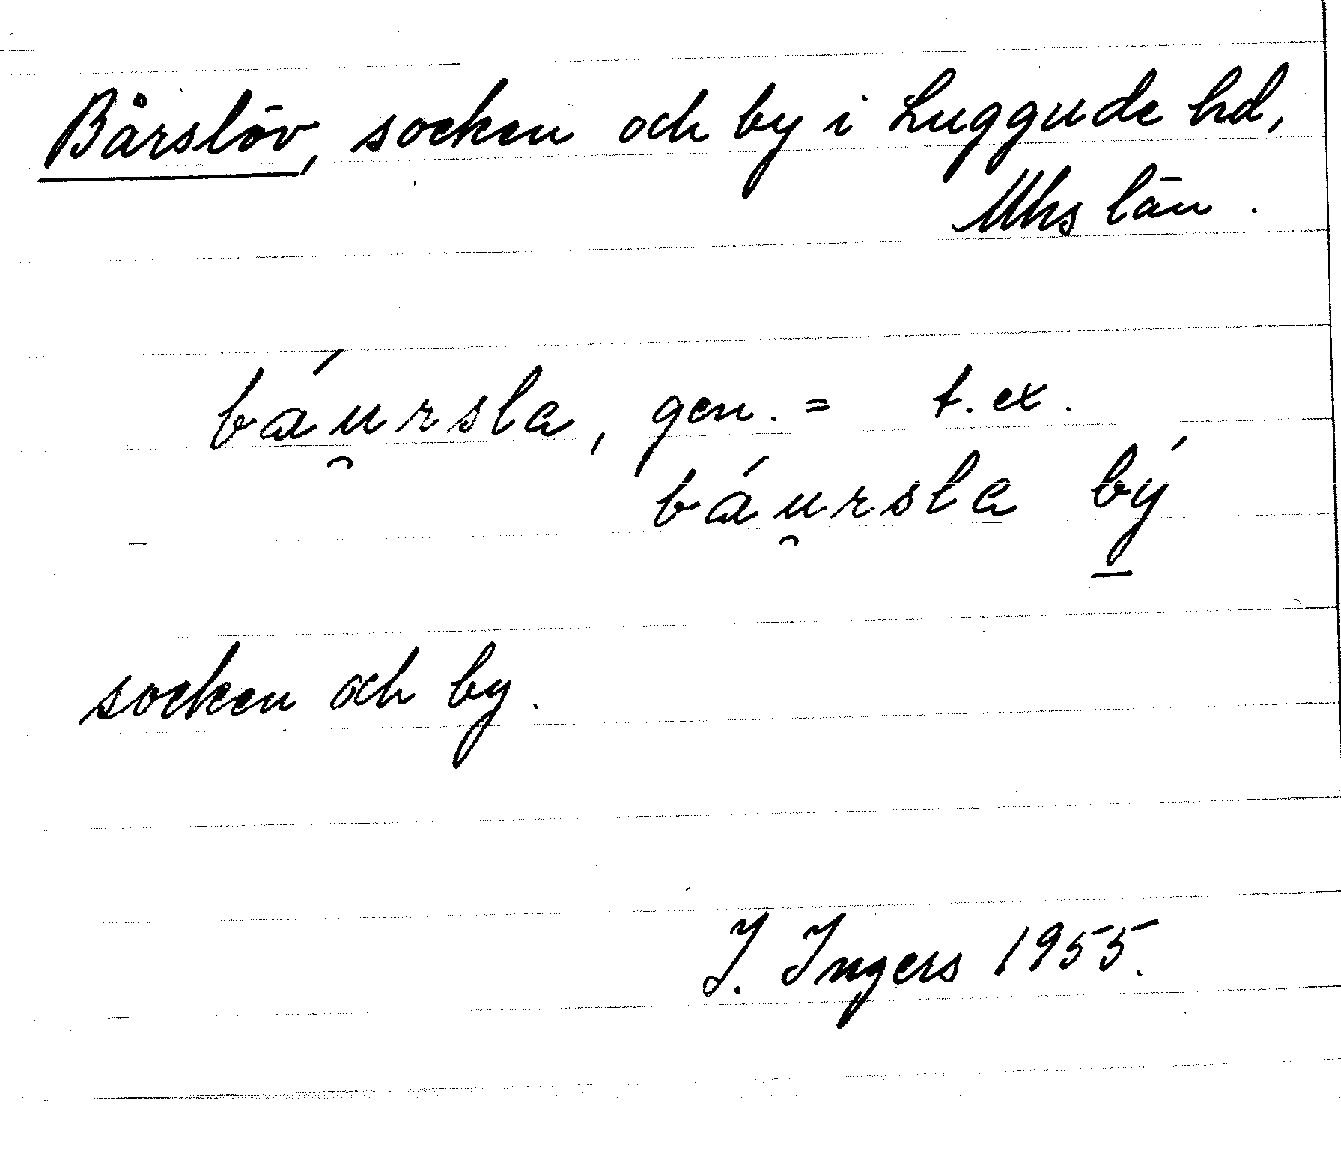 Bårslöv, socken och by i Luggude hd,
Mhs län.
báu̯rsla, gen. = t.ex.
báu̯rsla bý̠
socken och by.
I. Ingers 1955.